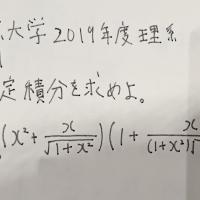 大学2019年度理系
定積分を求めよ。
(x²+x/√(1+x²))(1+x/((1+x²)√